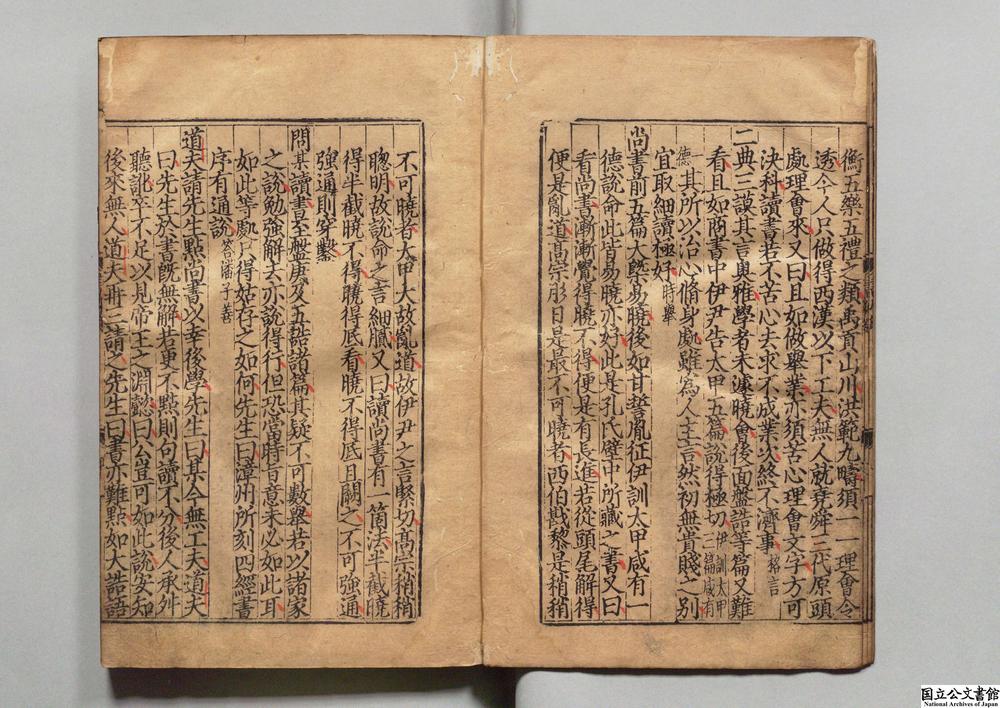 衡五樂五禮之類禹貢山川洪範九疇須一一理會令
透今人只做得西漢以下工夫無人就堯舜三代原頭
處理會來又曰且如做舉業亦須苦心理會文字方可
決科讀書若不苦心去求不成業次終不濟事 格言
二典三謨其言奧雅學者未遽曉會後面盤誥等篇又難
看且如商書中伊尹告太甲五篇說得極切 伊訓太甲三篇咸有一
德 其所以治心脩身處雖爲人主言然初無貴賤之別
宜取細讀極好 時舉
尚書前五篇大槩易曉後如甘誓胤征伊訓太甲咸有一
德說命此皆易曉亦好此是孔氏壁中所藏之書又曰
看尚書漸漸覺得曉不得便是有長進若從頭尾解得
便是亂道高宗肜日是最不可曉者西伯戡黎是稍稍
不可曉者太甲大故亂道故伊尹之言緊切高宗稍稍
聰明故說命之言細膩又曰讀尚書有一箇法半截曉
得半截曉不得曉得底看曉不得底且闕之不可強通
強通則穿鑿
問某讀書至盤庚及五誥諸篇其疑不可數舉若以諸家
之說勉強解去亦說得行但恐當時旨意未必如此耳
如此等處只得姑存之如何先生曰漳州所刻四經書
序有通說 答潘子善
道夫請先生點尚書以幸後學先生曰某今無工夫道夫
曰先生於書旣無解若更不點則句讀不分後人承舛
聽訛卒不足以見帝王之淵懿曰公豈可如此說安知
後來無人道夫再三請之先生曰書亦難點如大誥語
国立公文書館
National Archives of Japan